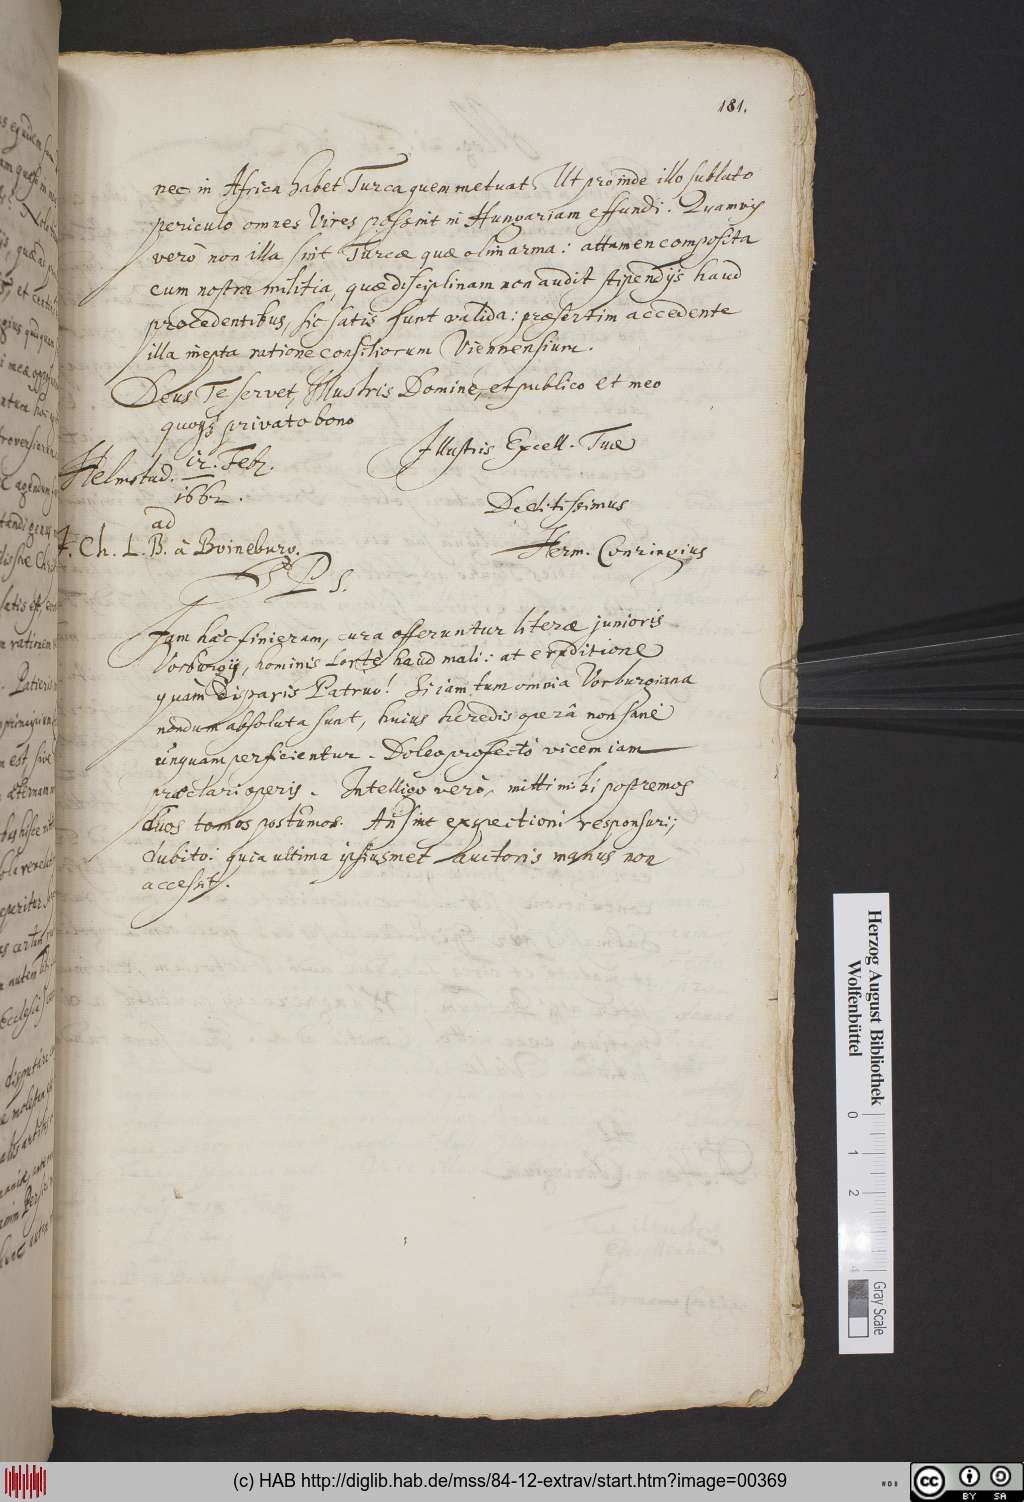 181.
nec in Africa habet Turca quem metuat. Ut proinde illo sublato
periculo omnes vires possint in Hungariam effundi. Quamvis
verò non illa sint Turcæ quæ olim arma: attamen composita
cum nostra militia, quæ disciplinam non audit stipendijs haud
procedentibus, sic satis sunt valida: præsertim accedente
illa inepta ratione consiliorum Viennensium.
Deus Te servet, Illustris Domine, et publico et meo
quoqꝫ privato bono
Illustris Excell. Tuæ
Helmstad. 12. Febr.
1662.
Deditissimus
ad
J. Ch. L. B. à Boineburg.
Herm. Conringius
P S.
Jam hæc finieram, cura offeruntur literæ junioris
Vorburgij, hominis certè haud mali: at eruditione
quàm disparis Patruo! Si iam tum omnia Vorburgiana
nondum absoluta sunt, huius heredis operâ non sanè
unquam perficientur. Doleo profectò vicem iam
præclari operis. Intelligo verò, mitti mihi postremos
duos tomos postumos. An sint exspectioni responsuri,
dubito: quia ultima ipsiusmet auctoris manus non
accessit.
Herzog August Bibliothek
Wolfenbüttel
0 1 2 4
Gray Scale
(c) HAB http://diglib.hab.de/mss/84-12-extrav/start.htm?image=00369
cc BY SA